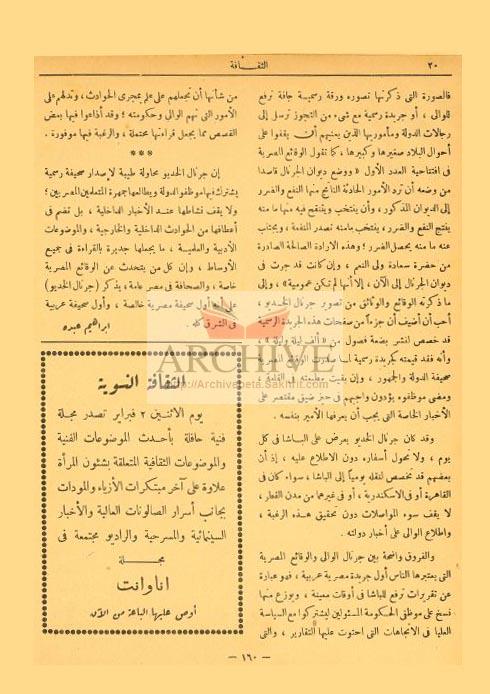 ٢٠
الثقافة
فالصورة التى ذكرتها تصوره ورقة رسمية جافة ترفع
للوالى ، أو جريدة رسمية مع شىء من التجوز ترسل إلى
رجالات الدولة ومأموريها الذين يعنيهم أن يقفوا على
أحوال البلاد صغيرها وكبيرها ، كما تقول الوقائع المصرية
فى افتتاحية العدد الأول « ووضع ديوان الجرنال قاصدا
من وضعه أن ترد الأمور الحادثة الناتج منها النفع والضرر
إلى الديوان المذكور ، وأن ينتخب وينتقح فيه منها ما منه
ينتج النفع والضرر ، ينتخب مامنه تصدر المنفعة ، ويجتنب
عنه ما منه يحصل الضرر ؛ وهذه الارادة الصالحة الصادرة
من حضرة سعادة ولى النعم ، وإن كانت قد جرت فى
ديوان الجرنال إلى الآن ، إلا أنها لم تكن عمومية » ، وإلى
ما ذكرته الوقائع والوثائق من تصوير جرنال الخديو ،
أحب أن أضيف أن جزءاً من صفحات هذه الجريدة الرسمية
قد خصص لنشر بضعة فصول من « ألف ليلة وليلة » ،
وأنه فقد قيمته كجريدة رسمية لما صدرت الوقائع المصرية
صحيفة الدولة والجمهور ، وإن بقيت مطبعته فى القلعة ،
ومضى موظفوه يؤدون واجبهم فى حيز ضيق مقتصر على
الأخبار الخاصة التى يجب أن يعرفها الأمير بنفسه .
وقد كان جرنال الخديو يعرض على الباشا فى كل
يوم ، ولا تحول أسفاره دون الاطلاع عليه ، إذ أن
بعضهم قد تخصص لنقله يومياً إلى الباشا ، سواء كان فى
القاهرة أو فى الاسكندرية ، أو فى غيرها من مدن القطر ،
لا يقف سوء المواصلات دون تحقيق هذه الرغبة ،
واطلاع الوالى على أخبار دولته .
والفروق واضحة بين جرنال الوالى والوقائع المصرية
التى يعتبرها الناس أول جريدة مصرية عربية ، فهو عبارة
عن تقريرات ترفع للباشا فى أوقات معينة ، ويوزع منها
نسخ على موظفى الحكومة المسئولين ليشتركوا مع السياسة
العليا فى الاتجاهات التى احتوت عليها التقارير ، والتى
من شأنها أن تجعلهم على علم بمجرى الحوادث ، وتدلهم على
الأمور التى تهم الوالى وحكومته ؛ وقد أذاعوا فيها بعض
القصص مما يجعل قراءتها محتملة ، والرغبة فيها موفورة .
***
إن جرنال الخديو محاولة طيبة لإصدار صحيفة رسمية
يشترك فيها موظفو الدولة ويطالعها جمهرة المتعلمين المصريين ؛
ولا يقف نشاطها عند الأخبار الداخلية ، بل تضم فى
أعطافها من الحوادث الداخلية والخارجية ، والموضوعات
الأدبية والعلمية ، ما يجعلها جديرة بالقراءة فى جميع
الأوساط ، وإن كل من يتحدث عن الوقائع المصرية
خاصة ، والصحافة فى مصر عامة ، يذكر (جرنال الخديو)
على أنه أول صحيفة مصرية خالصة ، وأول صحيفة عربية
فى الشرق كله .
ابراهيم عبده
الثقافة النسوية
يوم الاثنين ٢ فبراير تصدر مجلة
فنية حافلة بأحدث الموضوعات الفنية
والموضوعات الثقافية المتعلقة بشئون المرأة
علاوة على آخر مبتكرات الأزياء والمودات
بجانب أسرار الصالونات العالية والأخبار
السينمائية والمسرحية والراديو مجتمعة فى
مجلة
اناوانت
أوص عليها الباعة من الآن
— ١٦٠ —
ARCHIVE
http://Archivebeta.Sakhrit.com